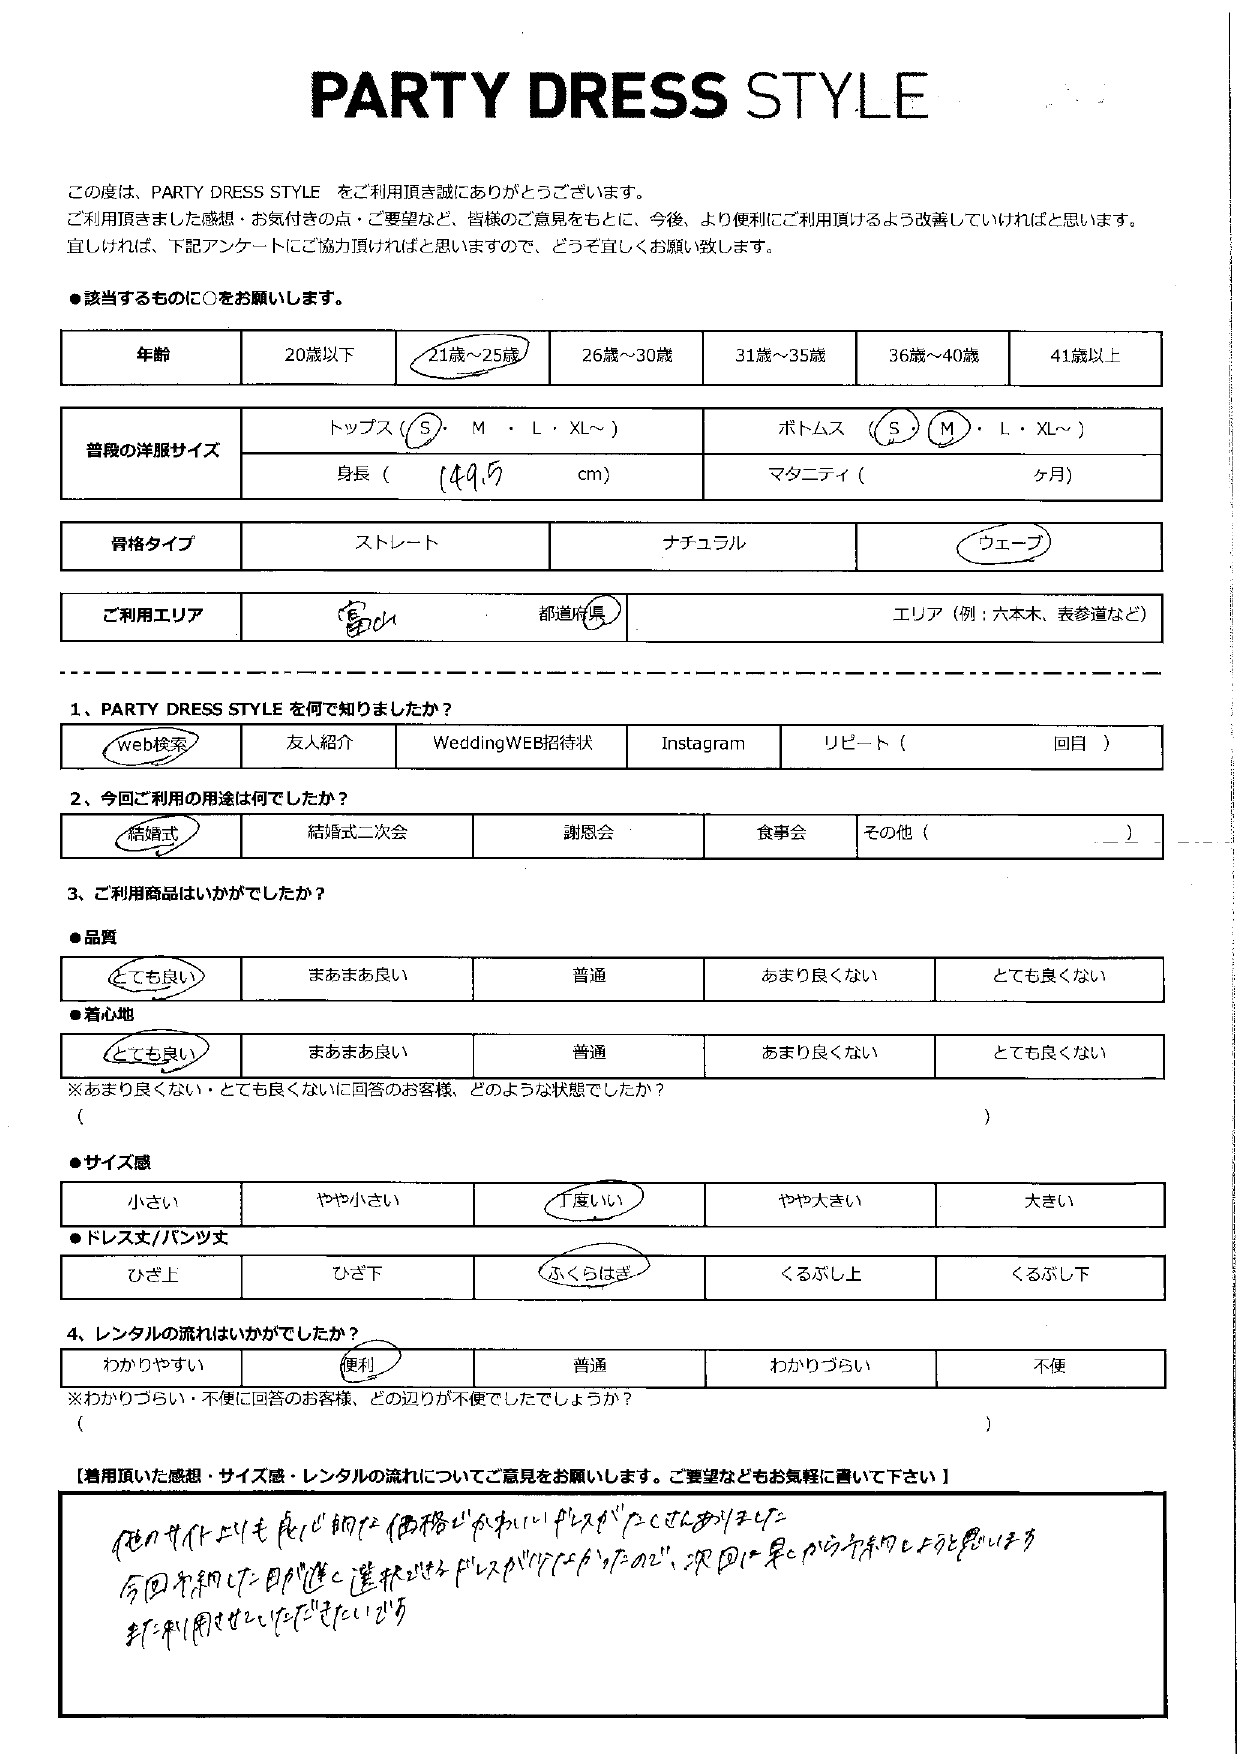 PARTY DRESS STYLE
この度は、PARTY DRESS STYLE をご利用頂き誠にありがとうございます。
ご利用頂きました感想・お気付きの点・ご要望など、皆様のご意見をもとに、今後、より便利にご利用頂けるよう改善していければと思います。
宜しければ、下記アンケートにご協力頂ければと思いますので、どうぞ宜しくお願い致します。
●該当するものに○をお願いします。
年齢 20歳以下 21歳～25歳 26歳～30歳 31歳～35歳 36歳～40歳 41歳以上
普段の洋服サイズ トップス (S・ M ・ L ・ XL～ ) ボトムス (S・ M ・ L ・ XL～ )
身長 ( 149.5 cm) マタニティ ( ヶ月)
骨格タイプ ストレート ナチュラル ウェーブ
ご利用エリア 富山 都道府県 エリア（例；六本木、表参道など）
1、PARTY DRESS STYLE を何で知りましたか？
web検索 友人紹介 WeddingWEB招待状 Instagram リピート ( 回目 )
2、今回ご利用の用途は何でしたか？
結婚式 結婚式二次会 謝恩会 食事会 その他 ( )
3、ご利用商品はいかがでしたか？
●品質
とても良い まあまあ良い 普通 あまり良くない とても良くない
●着心地
とても良い まあまあ良い 普通 あまり良くない とても良くない
※あまり良くない・とても良くないに回答のお客様、どのような状態でしたか？
( )
●サイズ感
小さい やや小さい 丁度いい やや大きい 大きい
●ドレス丈/パンツ丈
ひざ上 ひざ下 ふくらはぎ くるぶし上 くるぶし下
4、レンタルの流れはいかがでしたか？
わかりやすい 便利 普通 わかりづらい 不便
※わかりづらい・不便に回答のお客様、どの辺りが不便でしたでしょうか？
( )
【着用頂いた感想・サイズ感・レンタルの流れについてご意見をお願いします。ご要望などもお気軽に書いて下さい 】
他のサイトよりも良心的な価格でかわいいドレスがたくさんありました
今回予約した日が遅く選択できるドレスが少なかったので、次回は早くから予約しようと思います
また利用させていただきたいです